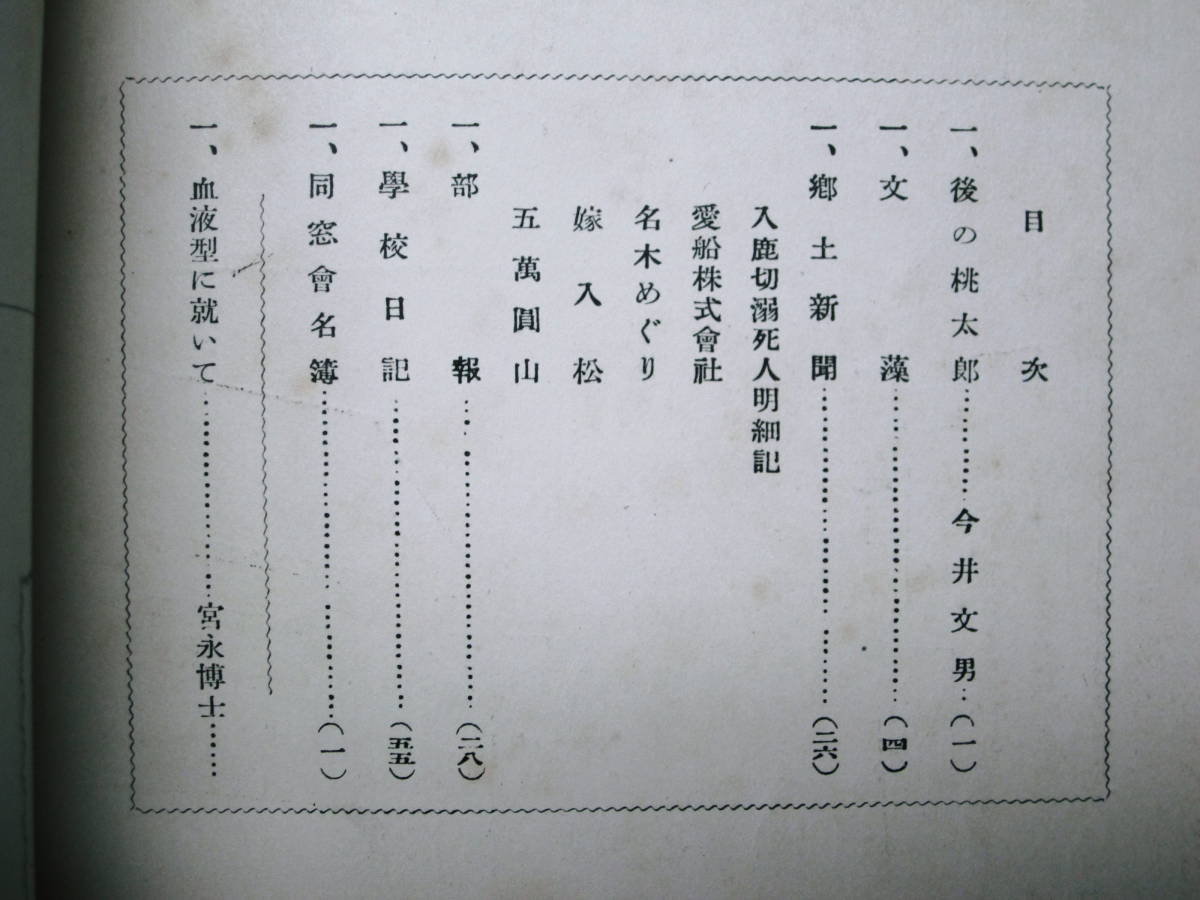 目次
一、後の桃太郎…………今井文男…(一)
一、文藻……………………………(四)
一、鄕土新聞……………………………(二六)
入鹿切溺死人明細記
愛船株式會社
名木めぐり
嫁入松
五萬圓山
一、部報……………………………(二八)
一、學校日記……………………………(五五)
一、同窓會名簿……………………………(一)
一、血液型に就いて…………………宮永博士……